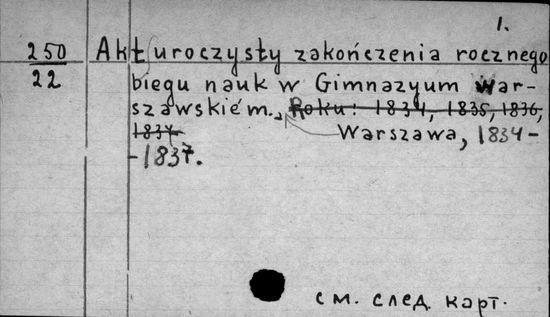 1.
250 Akt uroczysty zakończenia rocznego
22 biegu nauk w Gimnazyum War-
szawskiém., Roku: 1834, 1835, 1836,
1837 Warszawa, 1834-
-1837.
см. след. карт.